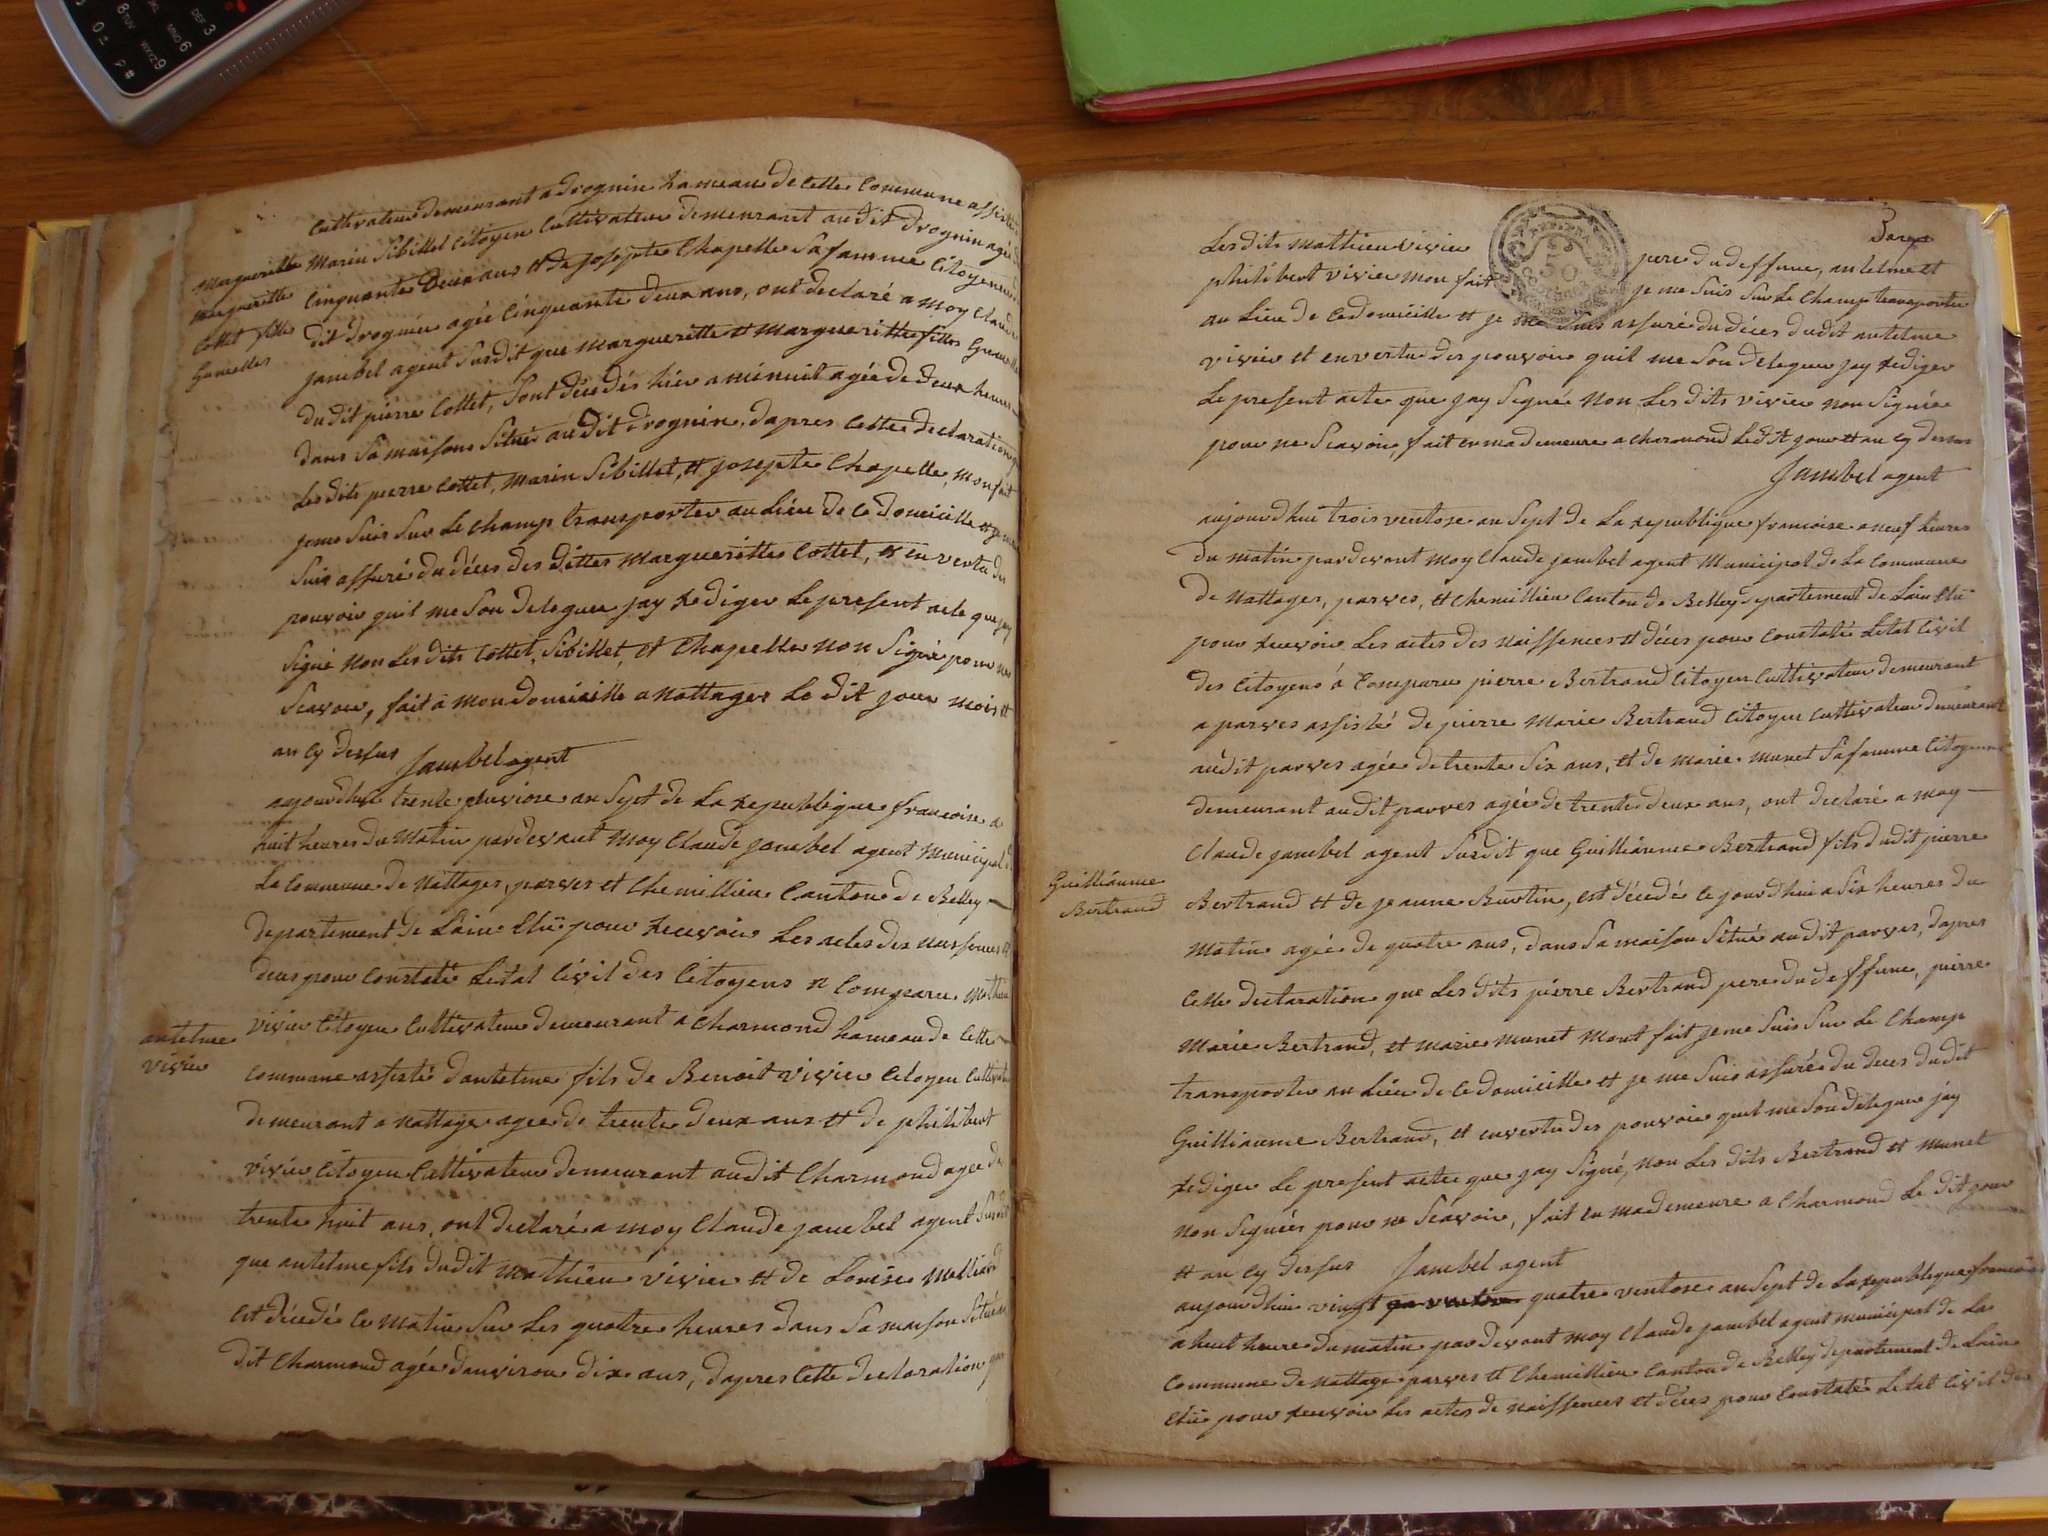 Cultivateur demeurant a Drognin hameau de Cette Commune assisté
Marguerite
Marguerite
Collet filles
Gemelles
Marin Sibillet Citoyen Cultivateur demeurant audit Drognin agée
Cinquante Deux ans et de Josepte Chapelle Sa famme Citoyenne
dit Drognin agée Cinquante deux ans, ont declaré a moy Claude
jambel agent Susdit que Marguerite et Marguerite filles
dudit pierre Collet, Sont décédés hier a minuit agée de deux heures
dans Sa maisons Situé audit Drognin, dapres Cette declaration
Les dits pierre Collet, Marin Sibillet, et Josepte Chapelle, mon fait
je me Suis Sur Le champ transporter au Lieu de Ce domicille et je me
Suis assuré du déces des dittes Marguerittes Collet, et en vertu des
pouvoir quil me Son deleguer jay Rediger Le present acte que jay
Signé Non Les dits Collet, Sibillet, et Chapelle non Signé pour ne
Scavoir, fait a mon domicille a Nattages Le dit jour mois et
an Cy dessus Jambel agent
aujourdhui trente pluviose an Sept de La Republique francoise a
huit heures du Matin pardevant moy Claude jambel agent Municipal de
La Commune de Nattages, parves et Chemillieu Canton de Belley
departement de Lain Elû pour Recevoir Les actes des naissences et
deces pour Constaté Letat Civil des Citoyens a Comparu Mathieu
antelme
vivier
vivier Citoyen Cultivateur demeurant a Charmond hameau de Cette
Commune assisté dantelme fils de Benoit vivier Citoyen Cultivateur
demeurant a Nattages agée de trente deux ans et de philibert
vivier Citoyen Cultivateur demeurant audit Charmond agée de
trente huit ans, ont declaré a moy Claude jambel agent Susdit
que antelme fils dudit Mathieu vivier et de Louise
Est décédé Ce matin Sur Les quattre heures dans Sa maison Située
dit Charmond agée danviron dix ans, dapres Cette declaration que
Les dits Mathieu vivier pere du deffunc, antelme et
philibert vivier mon fait je me Suis Sur Le Champ transporter
au Lieu de Ce domicille et je me Suis assuré du déces dudit antelme
vivier et en vertu des pouvoir quil me Son deleguer jay Rediger
Le present acte que jay Signé Non Les dits vivier non Signée
pour ne Scavoir, fait en ma demeure a charmond Ledit jour et an Cy dessus
Jambel agent
aujourdhui trois ventose an Sept de La Republique francoise a neuf heures
du matin pardevant moy Claude jambel agent Municipal de La Commune
De Nattages, parves, et Chemillieu Canton de Belley departement de Lain Elû
pour Recevoir Les actes des naissences et déces pour Constaté Letat Civil
des Citoyens á Comparu pierre Bertrand Citoyen Cultivateur demeurant
a parves assisté de pierre Marie Bertrand Citoyen Cultivateur demeurant
audit parves agée de trente Six ans, et de Marie munet Sa famme Citoyenne
demeurant audit parves agée de trente deux ans, ont declaré a moy
Claude jambel agent Susdit que Guilliaume Bertrand fils dudit pierre
Guilliaume
Bertrand
Bertrand et de jeanne Burtin, est décédé Ce jourdhui a Six heures du
Matin agée de quatre ans, dans Sa maison Située audit parves, dapres
Cette declaration que Les dits pierre Bertrand pere du deffunc, pierre
Marie Bertrand, et marie munet Mont fait je me Suis Sur Le Champ
transporter au Lieu de Ce domicille et je me Suis assuré du deces dudit
Guilliaume Bertrand, et en vertu des pouvoir quil me Son deleguer jáy
Rediger Le present acte que jay Signé, Non Les dits Bertrand et munet
non Signées pour ne Scavoir, fait en ma demeure a Charmond Le dit jour
et an Cy dessus Jambel agent
aujourdhui vingt quatre ventose an Sept de La Republique francoise
a huit heure du matin pardevant moy Claude jambel agent municipal de La
Commune de Nattage parves et Chemillieu Canton de Belley departement de Lain
Elû pour Recevoir Les actes de naissences et déces pour Constaté Letat Civil des